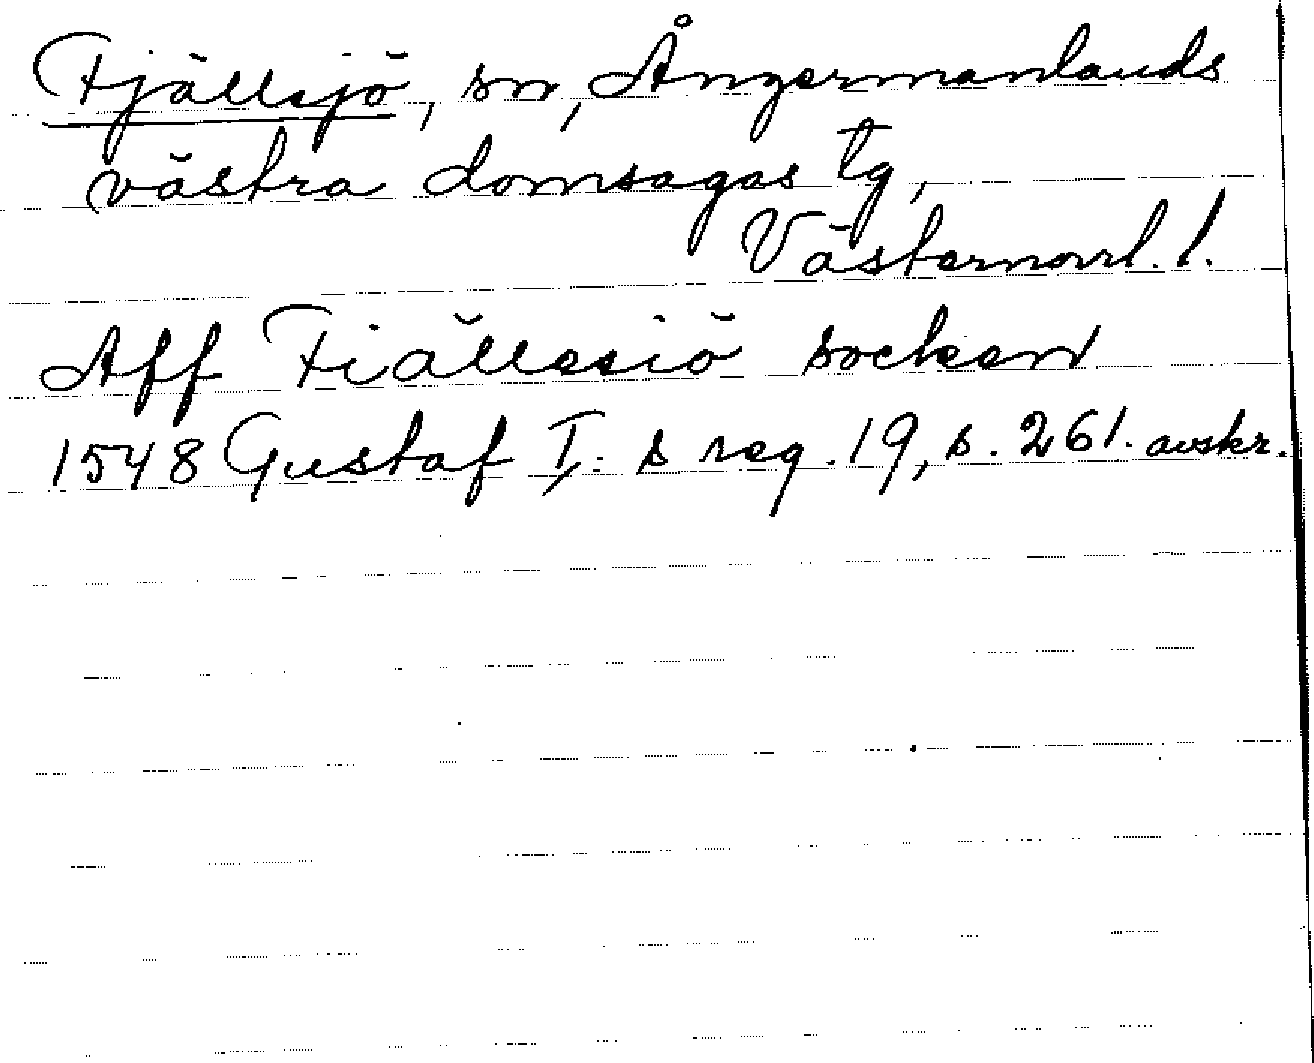 Fjällsjö, sn, Ångermanlands
västra domsagas tg,
Västernorrl. l.
Aff Fiällesiö socken
1548 Gustaf I:s reg. 19, s. 261. avskr.